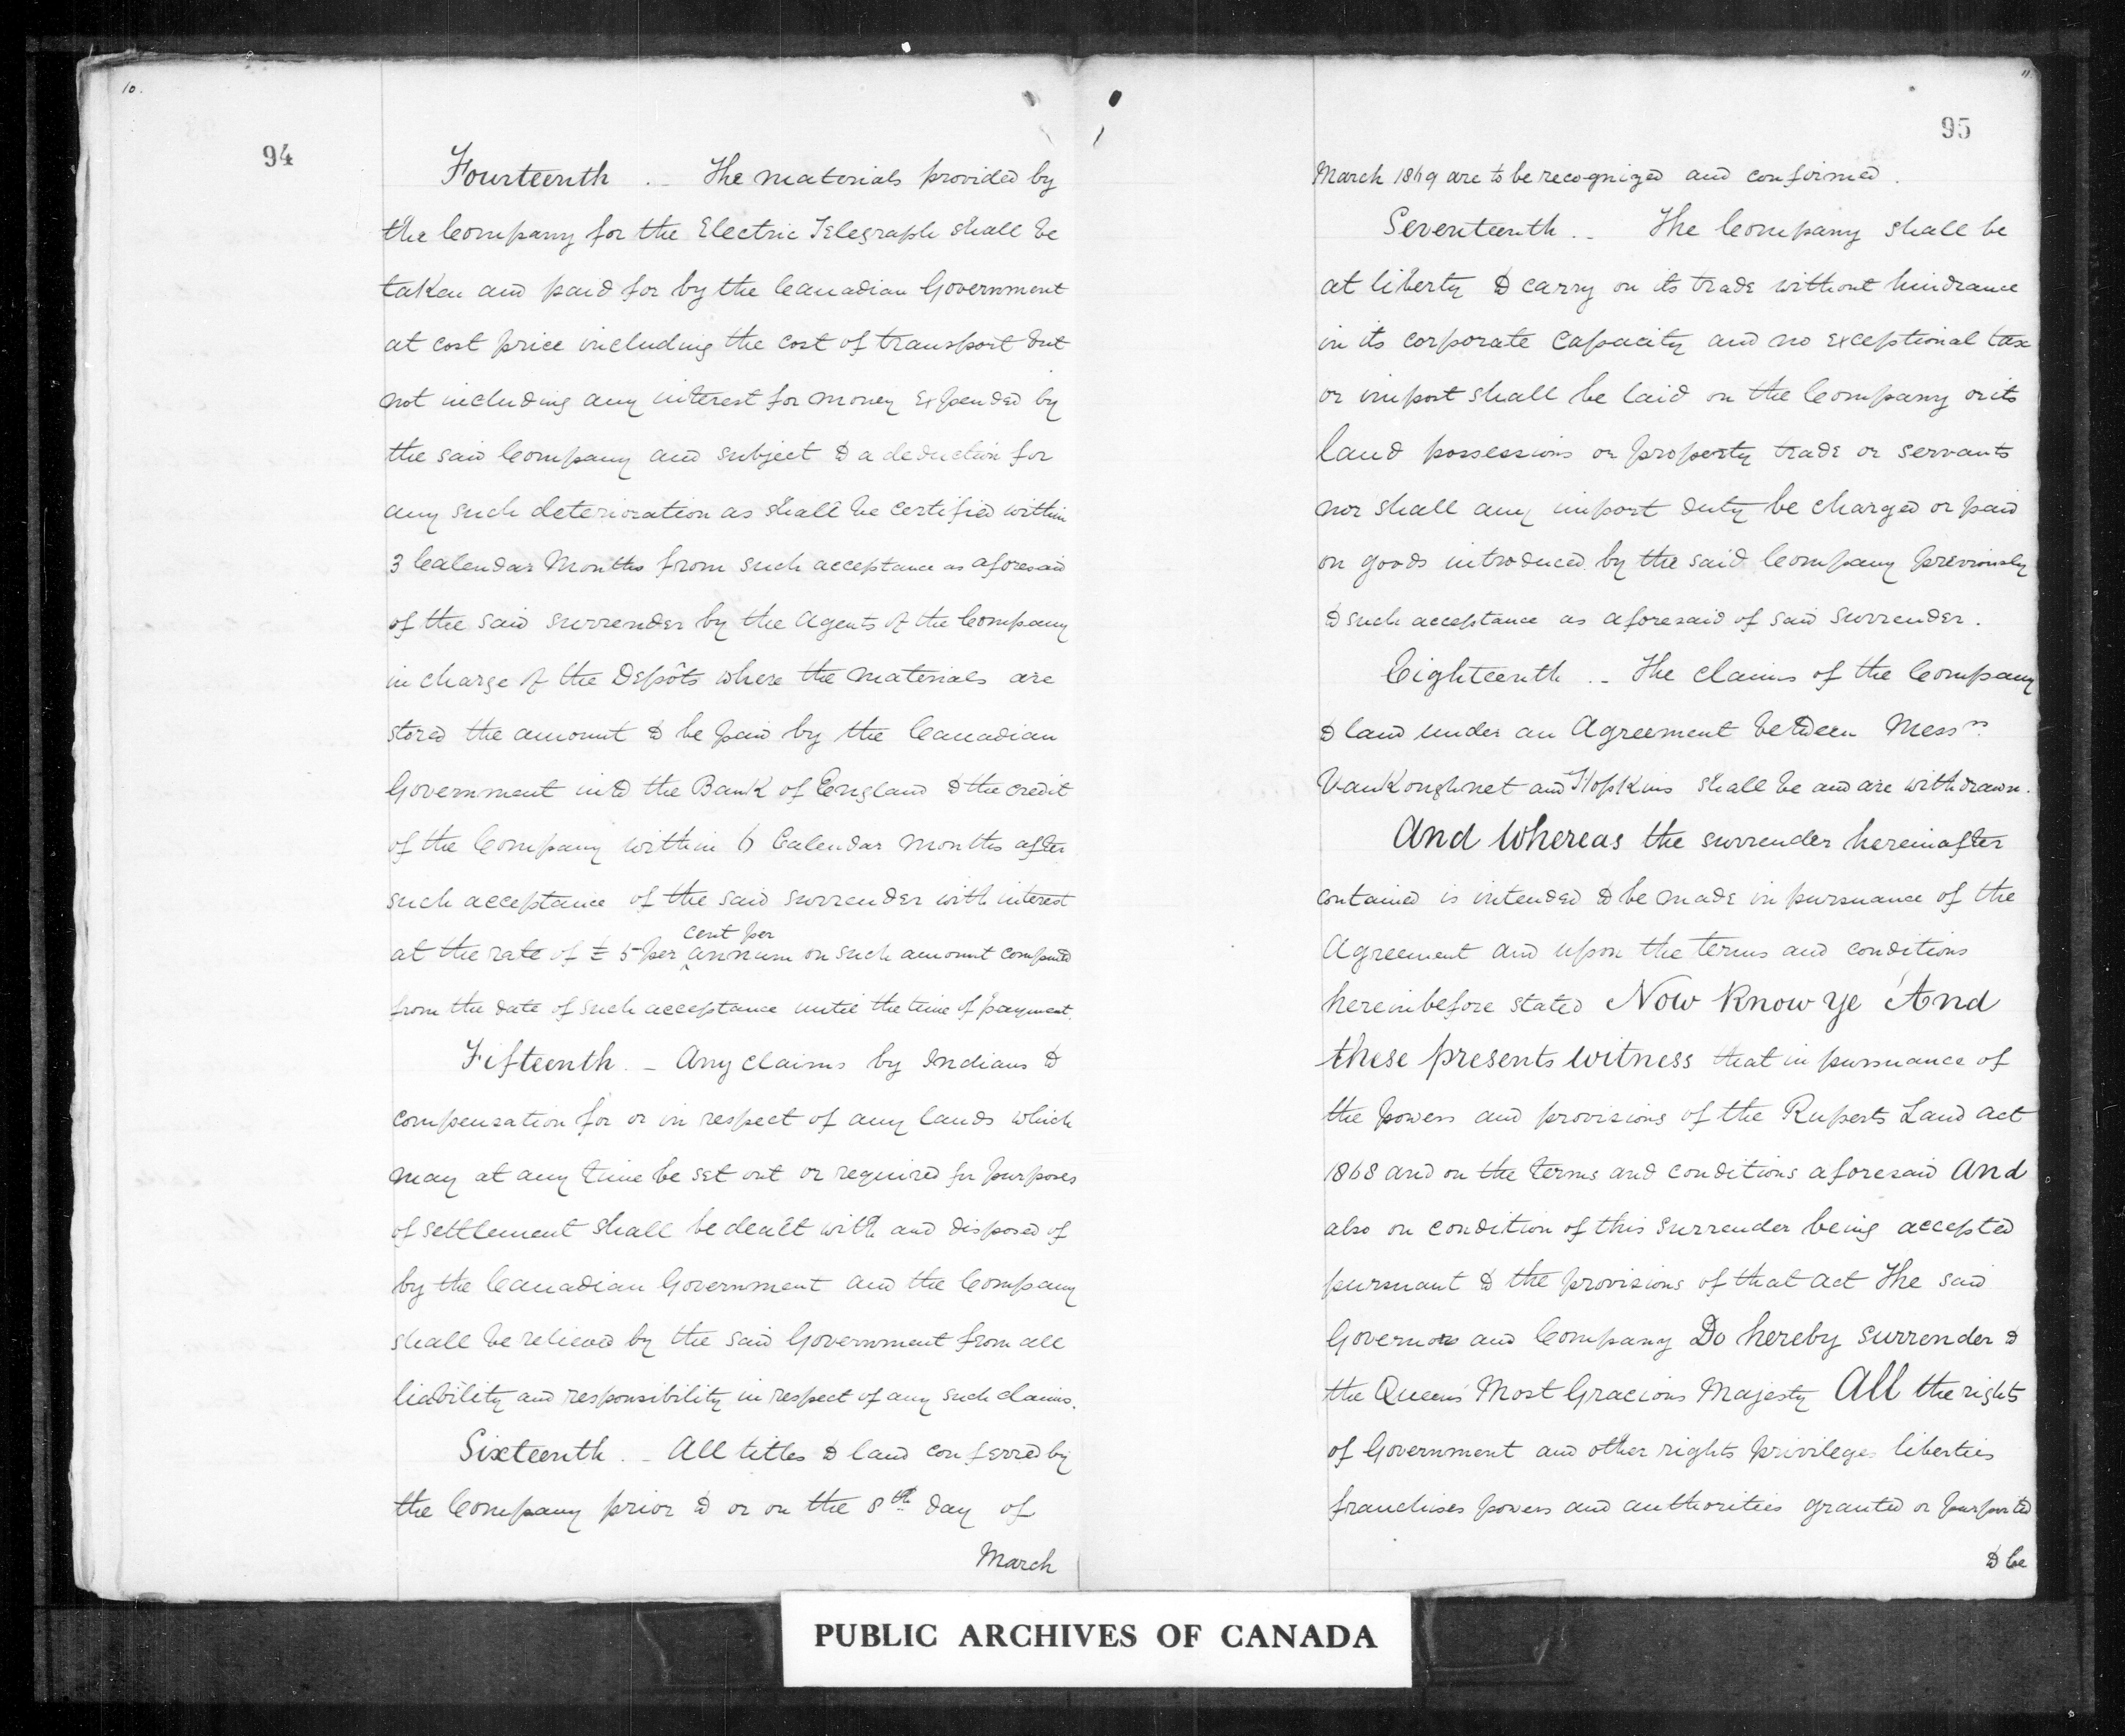 10.
94
Fourteenth . _ The materials provided by
the Company for the Electric Telegraph shall be
taken and paid for by the Canadian Government
at cost price including the cost of transport but
not including any interest for money expended by
the said Company and subject to a deduction for
any such deterioration as shall be certified within
3 Calendar Months from such acceptance as aforesaid
of the said surrender by the Agents of the Company
in charge of the Depôts where the materials are
stored the amount to be paid by the Canadian
Government into the Bank of England to the credit
of the Company within 6 Calendar Months after
such acceptance of the said surrender with interest
cent per
at the rate of £ 5 per annum on such amount computed
from the date of such acceptance until the time of payment.
Fifteenth . _ Any claims by Indians to
compensation for or in respect of any lands which
may at any time be set out or required for purposes
of settlement shall be dealt with and disposed of
by the Canadian Government and the Company
shall be relieved by the said Government from all
liability and responsibility in respect of any such claims.
Sixteenth . _ All titles to land conferred by
the Company prior to or on the 8th day of
March
11.
95
March 1869 are to be recognized and confirmed .
Seventeenth . _ The Company shall be
at liberty to carry on its trade without hindrance
in its corporate capacity and no exceptional tax
or impost shall be laid on the Company or its
land possessions or property trade or servants
nor shall any import duty be charged or paid
on goods introduced by the said Company previously
to such acceptance as aforesaid of said surrender.
Eighteenth . _ The claims of the Company
to land under an Agreement between Messrs.
VanKoughnet and Hopkins shall be and are withdrawn.
And Whereas the surrender hereinafter
contained is intended to be made in pursuance of the
Agreement and upon the terms and conditions
hereinbefore stated Now Know Ye And
these presents witness that in pursuance of
the powers and provisions of the Ruperts Land Act
1868 and on the terms and conditions aforesaid And
also on condition of this surrender being accepted
pursuant to the provisions of that Act The said
Governor and Company Do hereby surrender to
the Queen's Most Gracious Majesty All the rights
of Government and other rights privileges liberties
franchises powers and authorities granted or purported
to be
PUBLIC ARCHIVES OF CANADA